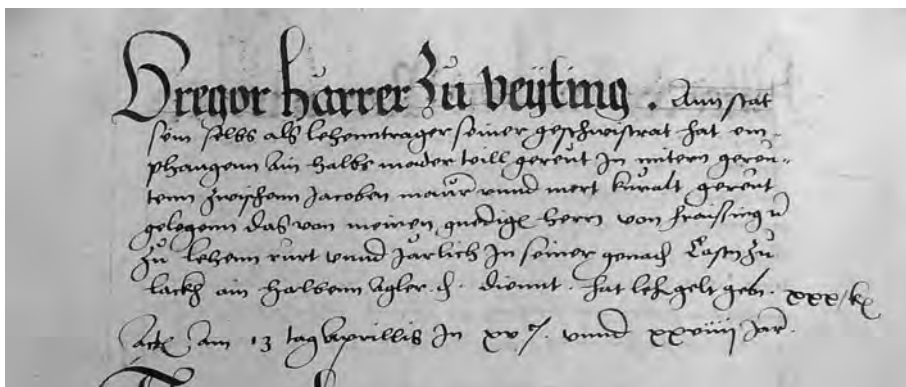 Gregor harrer Zu veyting . Ann stat
sein selbs als lehenntrager seiner geschwistrat hat em-
phangenn ain halbs mader taill gereut In mitern gereu-
tenn zwischenn Jacoben maurer unnd mert kuralt gereut
gelegenn das von meinen gnedigen herrn von fraissing
zu lehenn rurt unnd Jarlich In seiner gnad Casten zu
lackh ain halbenn Agler d. diennt . hat lehgelt geben . xxx / k
Act. Am 13 tag Aprillis In xv unnd xxviiii Jar.